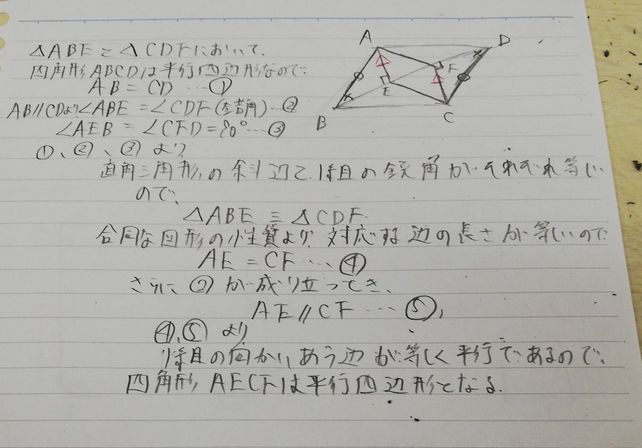 △ABEと△CDFにおいて、
四角形ABCDは平行四辺形なので
AB = CD …①
AB//CDより∠ABE = ∠CDF(錯角)…②
∠AEB = ∠CFD = 90° …③
①、②、③より
直角三角形の斜辺と1組の鋭角がそれぞれ等しい
ので、
△ABE ≡ △CDF.
合同な図形の性質より対応する辺の長さが等しいので
AE = CF …④
さらに、②が成り立つとき、
AE // CF …⑤,
④,⑤より
1組の向かいあう辺が等しく平行であるので、
四角形AECFは平行四辺形となる.
A
D
F
E
B
C